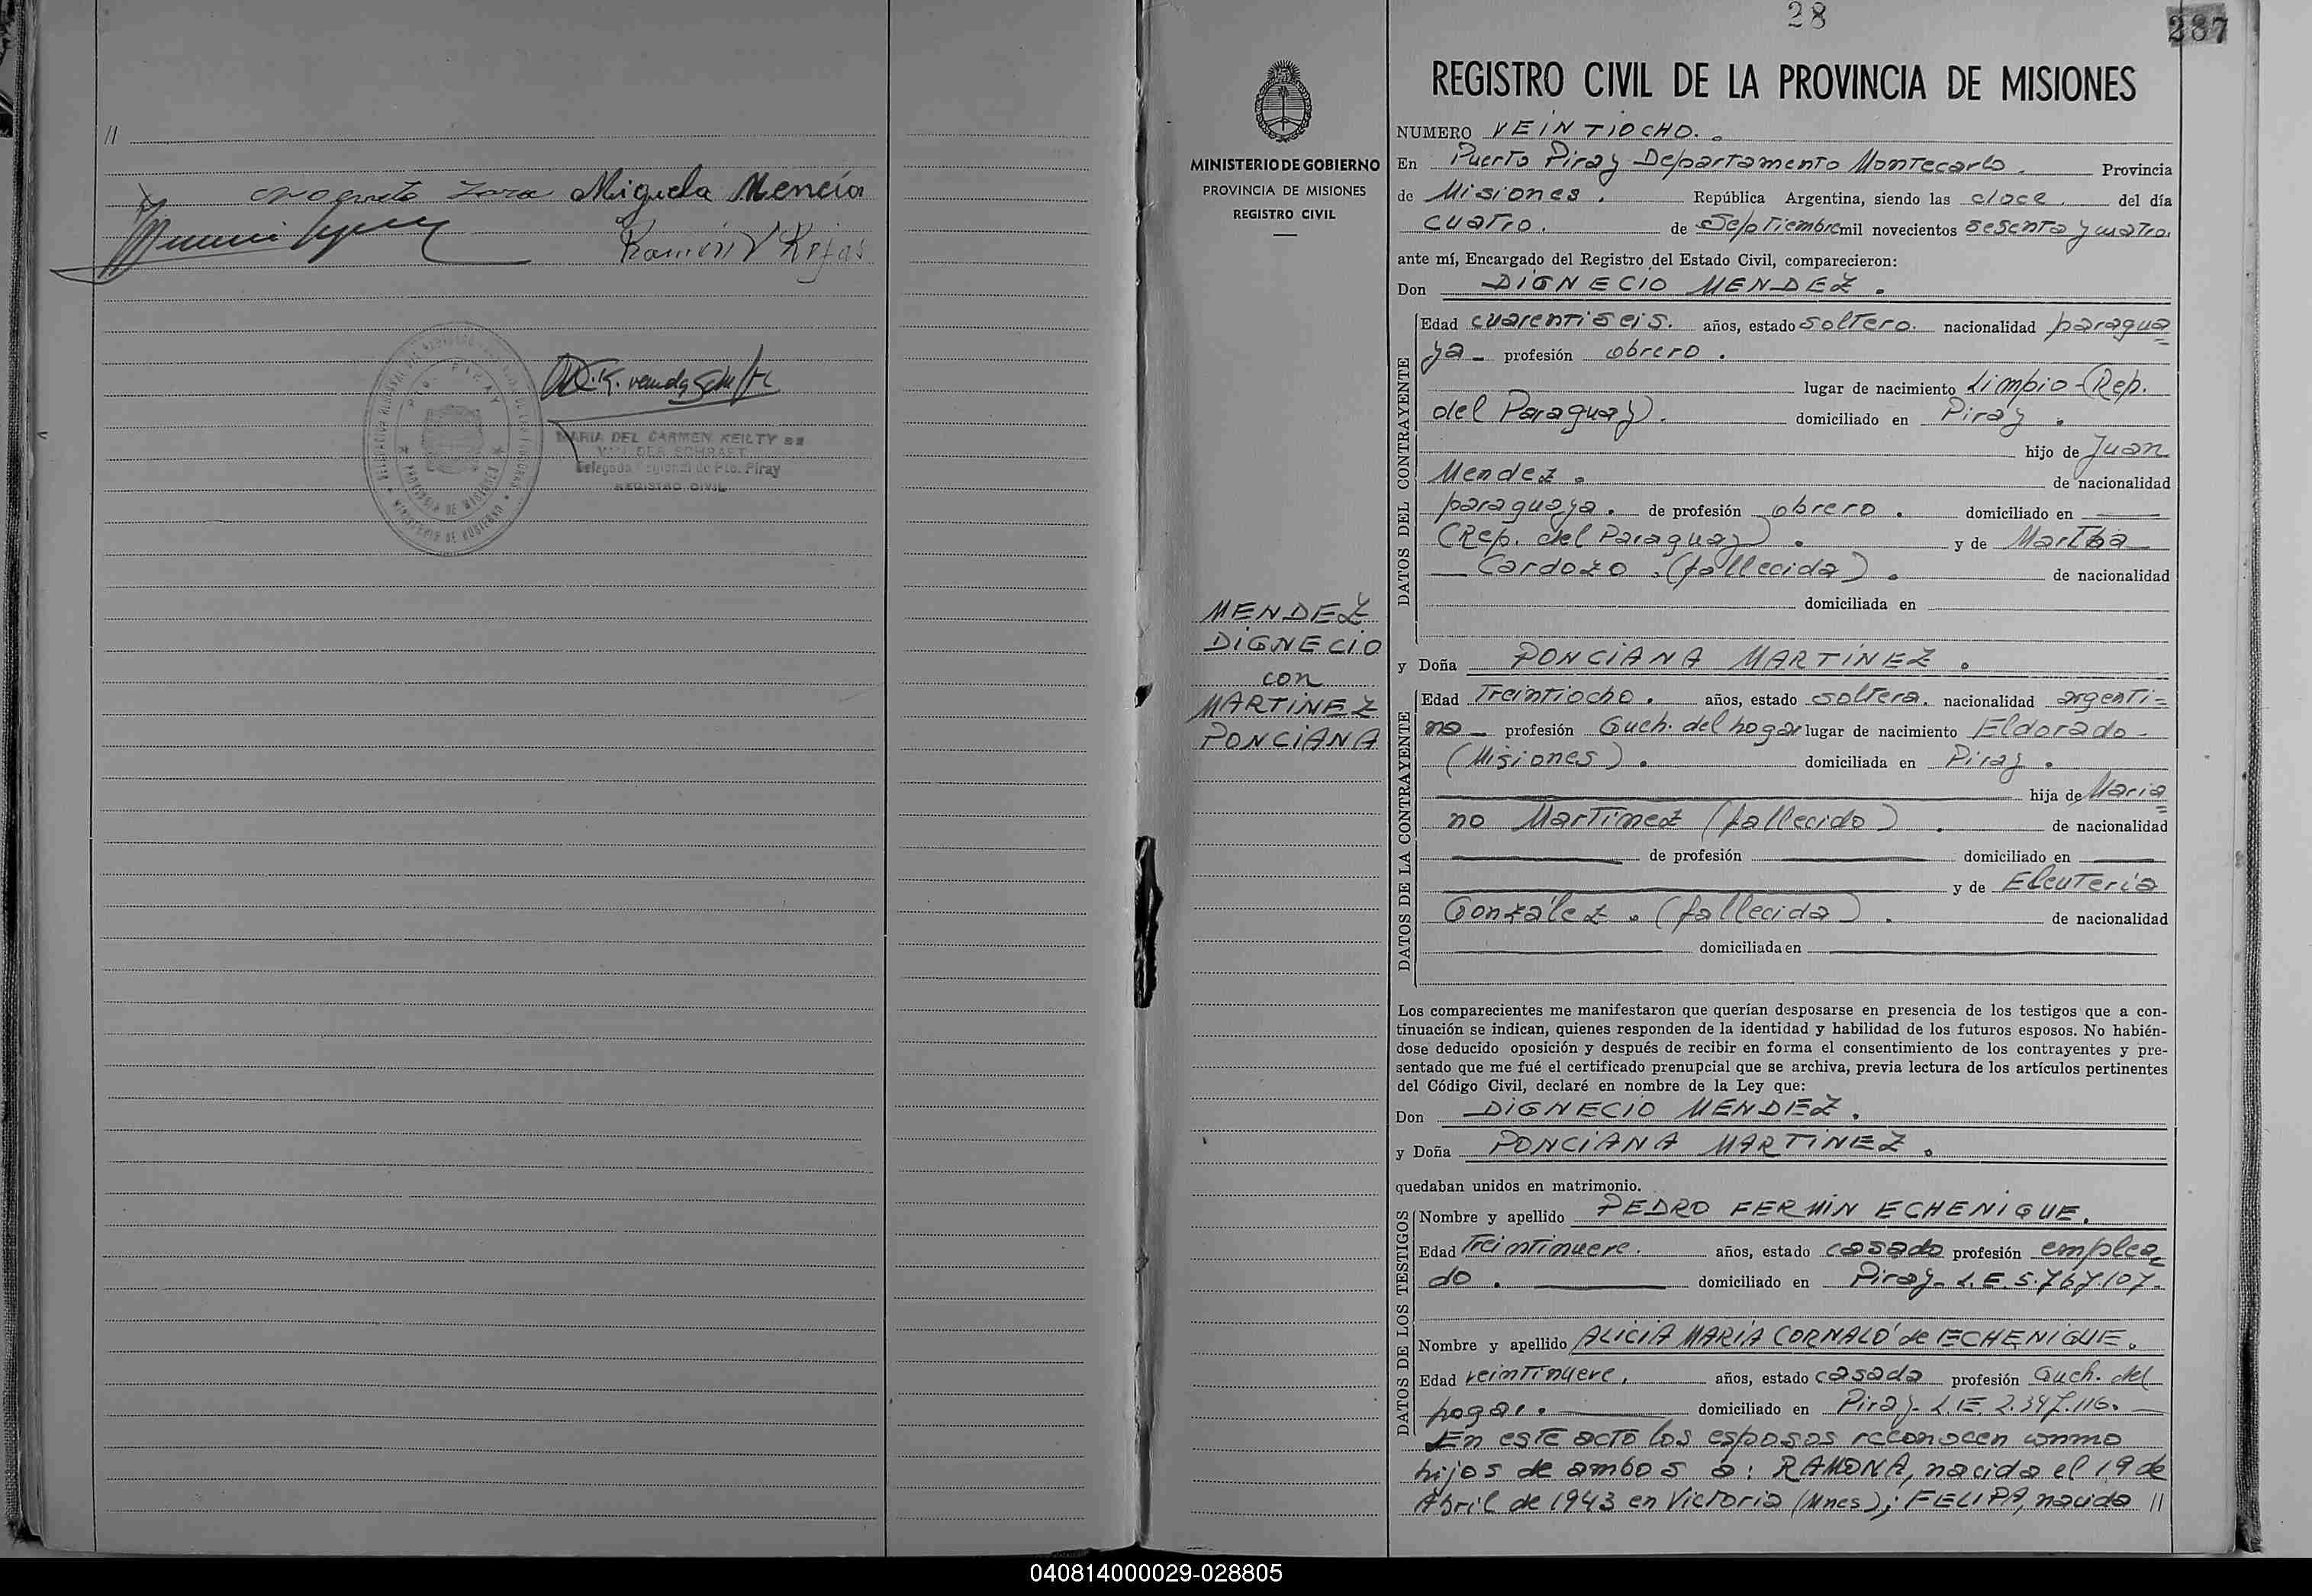 //
Miguela Mencia
Ramón V Rojas
PTO. PIRAY
PROVINCIA DE MISIONES
MINISTERIO DE GOBIERNO
MARIA DEL CARMEN KEILTY de
VAN DER SCHRAFT
Delegada Regional de Pto. Piray
REGISTRO CIVIL
28
287
MINISTERIO DE GOBIERNO
PROVINCIA DE MISIONES
REGISTRO CIVIL
MENDEZ
DIGNECIO
con
MARTINEZ
PONCIANA
REGISTRO CIVIL DE LA PROVINCIA DE MISIONES
NUMERO VEINTIOCHO.
En Puerto Piray Departamento Montecarlo. Provincia
de Misiones. República Argentina, siendo las doce. del día
cuatro. de Septiembre mil novecientos sesenta y cuatro.
ante mí, Encargado del Registro del Estado Civil, comparecieron:
Don DIGNECIO MENDEZ.
DATOS DEL CONTRAYENTE
Edad cuarentiseis. años, estado soltero. nacionalidad paragua=
ya - profesión obrero.
lugar de nacimiento Limpio-(Rep.
del Paraguay). domiciliado en Piray.
hijo de Juan
Mendez. de nacionalidad
paraguaya. de profesión obrero. domiciliado en
(Rep. del Paraguay). y de Martha
Cardozo. (fallecida). de nacionalidad
domiciliada en
y Doña PONCIANA MARTINEZ.
DATOS DE LA CONTRAYENTE
Edad Treintiocho. años, estado soltera. nacionalidad argenti=
na - profesión Queh. del hogar lugar de nacimiento Eldorado-
(Misiones). domiciliada en Piray.
hija de Maria=
no Martinez (fallecido). de nacionalidad
de profesión domiciliado en
y de Eleuteria
González. (fallecida). de nacionalidad
domiciliada en
Los comparecientes me manifestaron que querían desposarse en presencia de los testigos que a con-
tinuación se indican, quienes responden de la identidad y habilidad de los futuros esposos. No habién-
dose deducido oposición y después de recibir en forma el consentimiento de los contrayentes y pre-
sentado que me fué el certificado prenupcial que se archiva, previa lectura de los artículos pertinentes
del Código Civil, declaré en nombre de la Ley que:
Don DIGNECIO MENDEZ.
y Doña PONCIANA MARTINEZ.
quedaban unidos en matrimonio.
DATOS DE LOS TESTIGOS
Nombre y apellido PEDRO FERMIN ECHENIQUE.
Edad Treintinueve. años, estado casado profesión emplea=
do. domiciliado en Piray- L.E. 5.767.107-
Nombre y apellido ALICIA MARIA CORNALO' de ECHENIQUE.
Edad veintinueve. años, estado casada profesión Queh. del
hogar. domiciliado en Piray- L.E. 2.347.116.
En este acto los esposos reconocen conmo
hijos de ambos a: RAMONA, nacida el 19 de
Abril de 1943 en Victoria (Mnes); FELIPA, nacida //
040814000029-028805